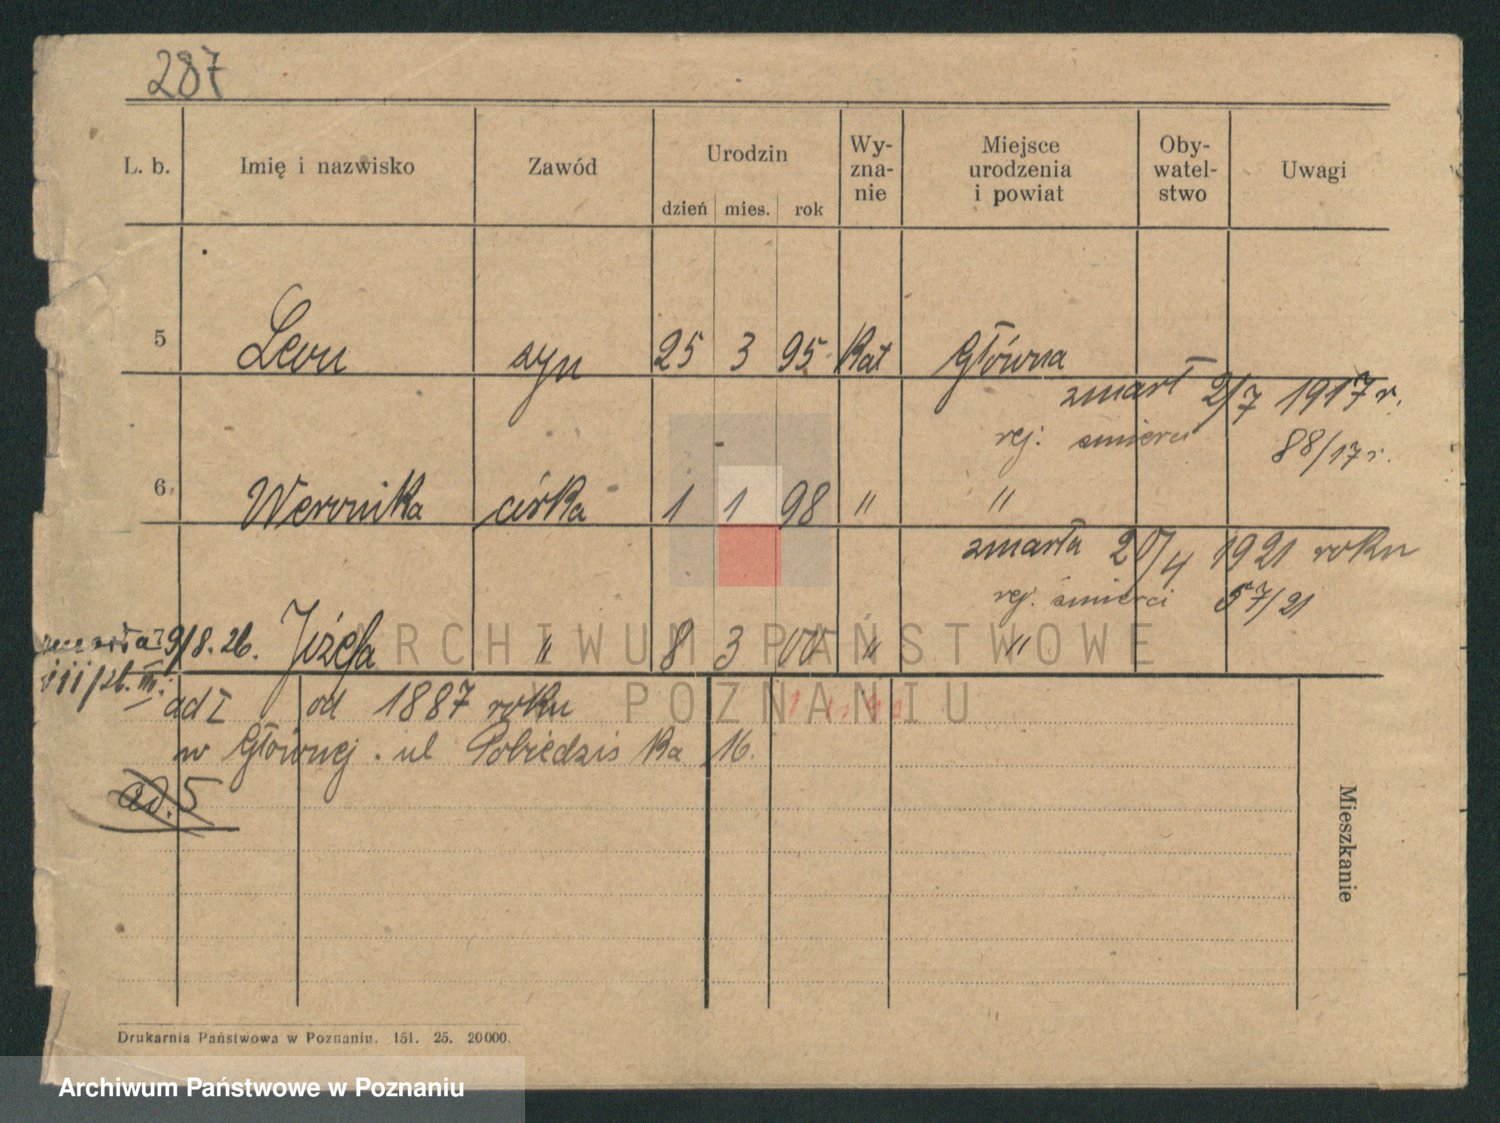 287
L. b. Imię i nazwisko Zawód Urodzin dzień mies. rok Wy-zna-nie Miejsce urodzenia i powiat Oby-watel-stwo Uwagi
5 Leon syn 25 3 95 kat Główna
zmarł 2/7 1917 r.
rej. śmierci 88/17 r.
6. Weronika córka 1 1 98 " "
zmarła 20/4 1921 roku
rej. śmierci 57/21
zmarła 19/8. 26. Józefa " 8 3 00 " "
ad I od 1887 roku
w Głównej. ul Pobiedziska 16.
ad. 5
Mieszkanie
ARCHIWUM PAŃSTWOWE
W POZNANIU
Drukarnia Państwowa w Poznaniu. 151. 25. 20000.
Archiwum Państwowe w Poznaniu